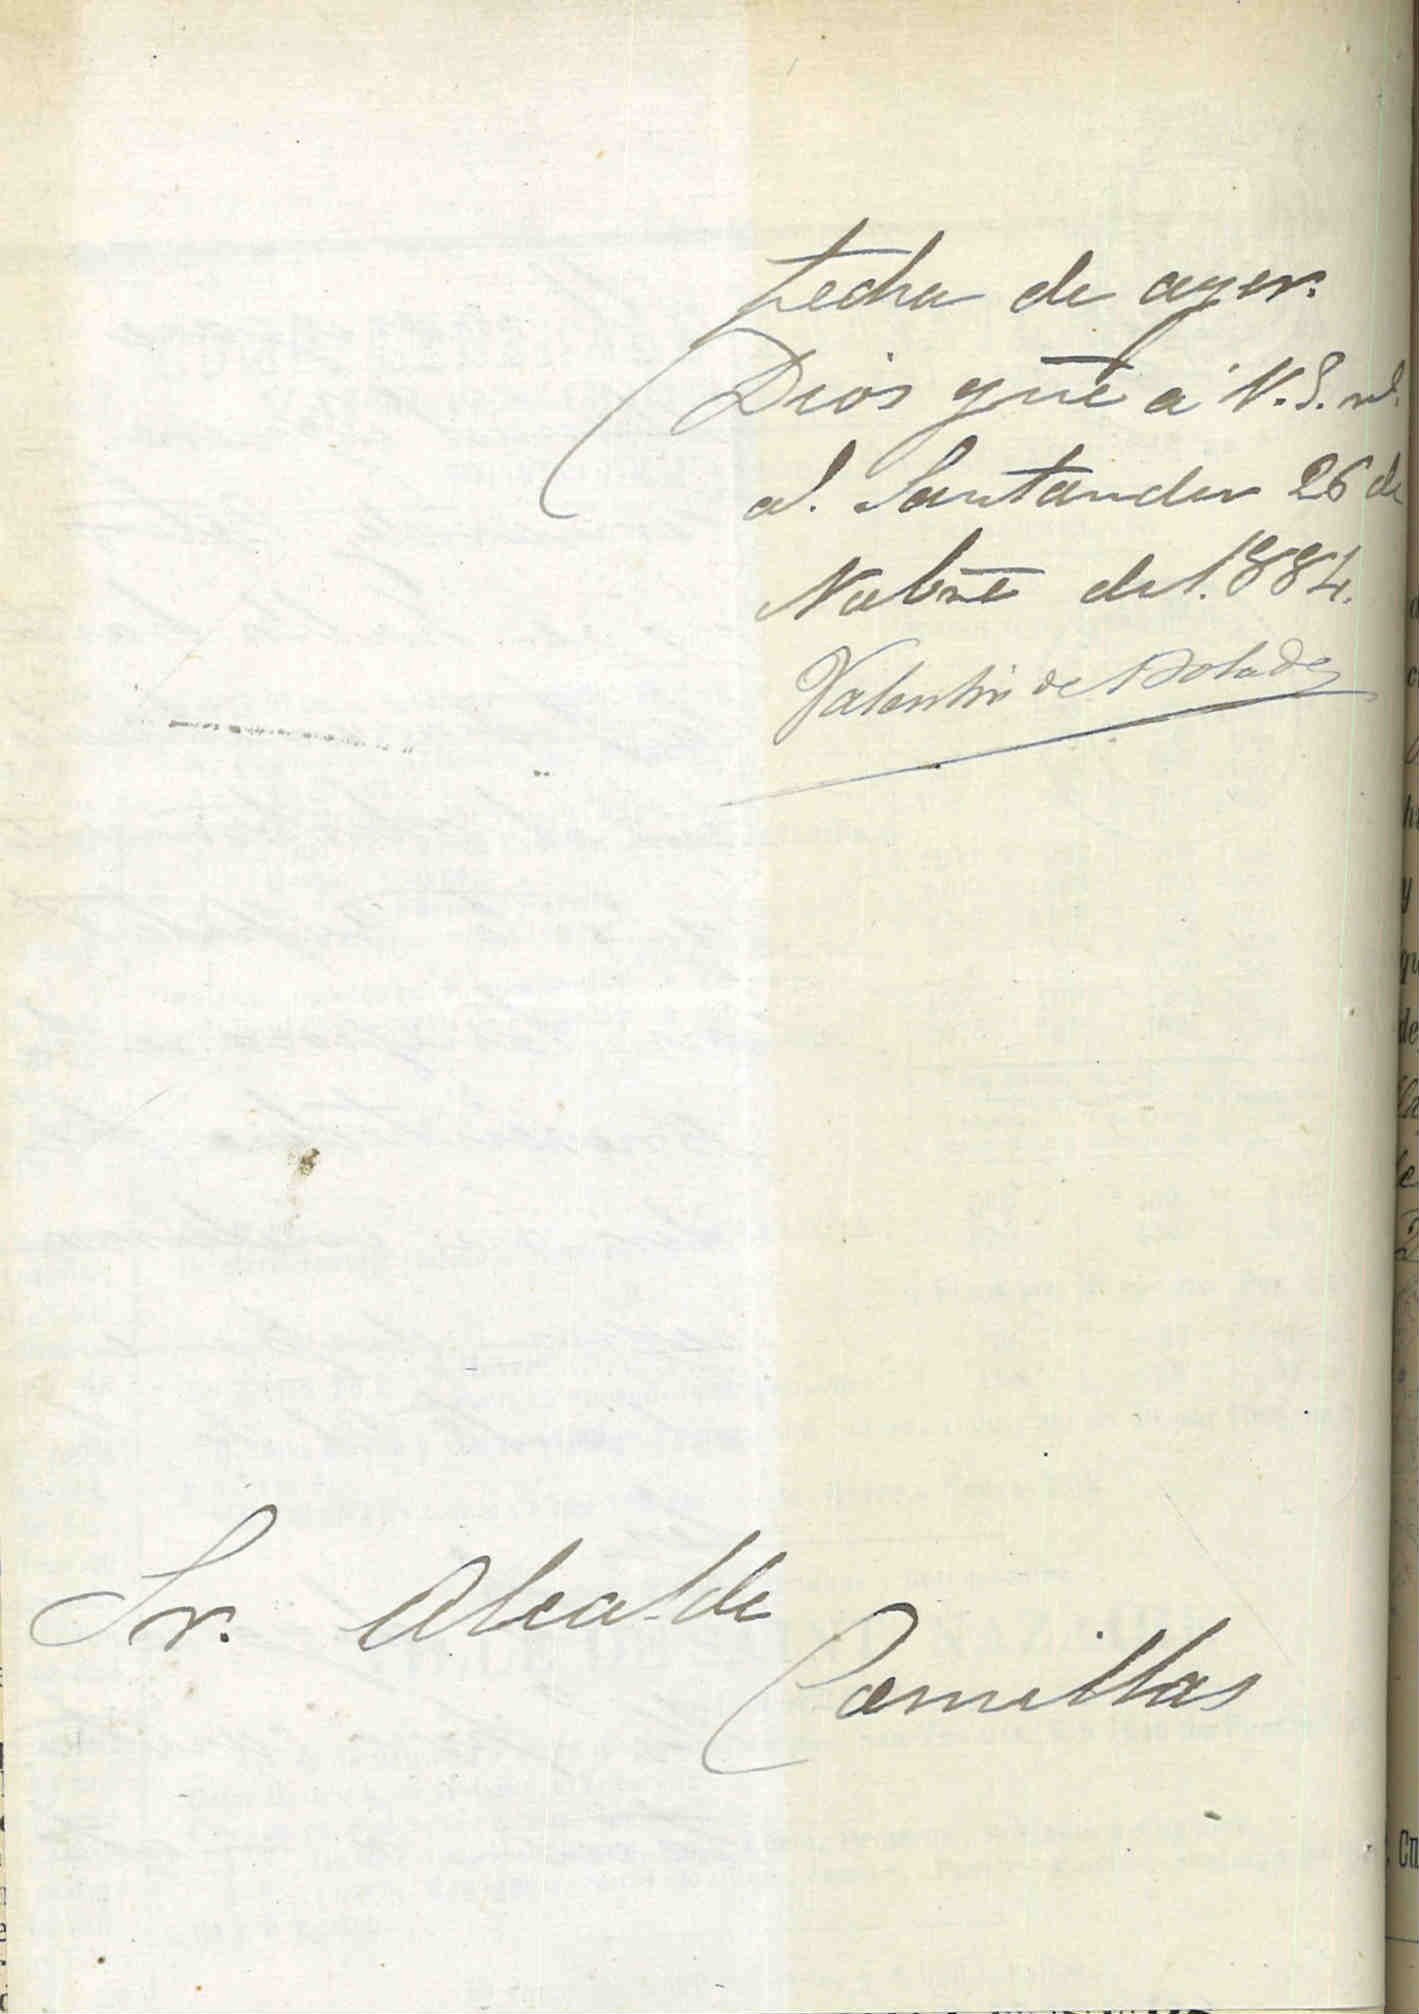 fecha de ayer.
Dios gue á V.S. m.
a.! Santander 26 de
Nobre de 1.884.
Valentin de
Sr. Alcalde
Comillas